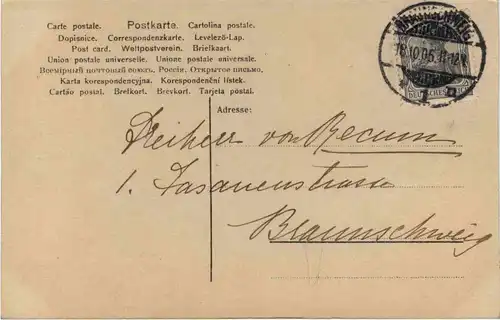 Carte postale. Postkarte. Cartolina postale.
Dopisnice. Correspondenzkarte. Levelező-Lap.
Post card. Weltpostverein. Briefkaart.
Union postale universelle. Unione postale universale.
Всемірный почтовый союзъ. Россія. Открытое письмо.
Karta korespondencyjna. Korespondenční lístek.
Cartão postal. Brefkort. Brevkort. Tarjeta postal.
BRAUNSCHWEIG
18.10.05.11-12V.
DEUTSCHES
Adresse:
Freiherr von Recum
1. Fasanenstrasse
Braunschweig